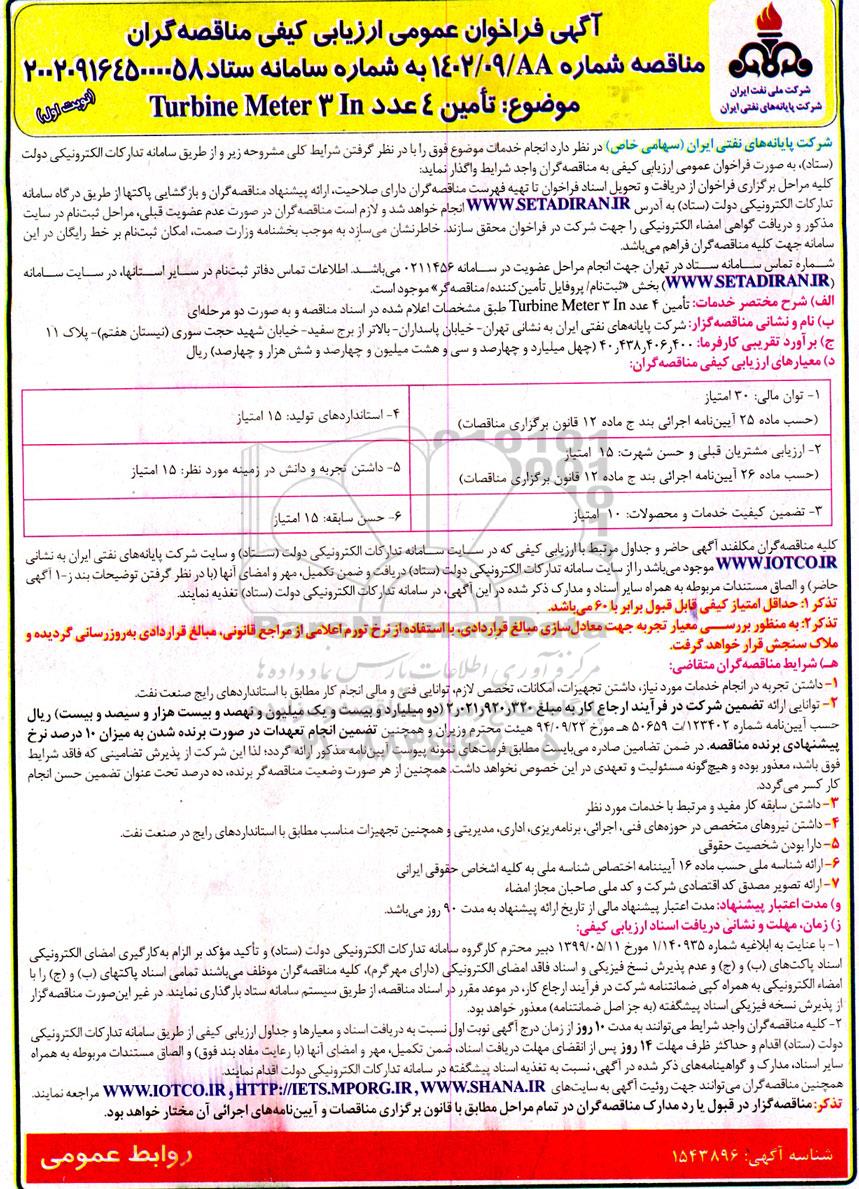 آگهی فراخوان عمومی ارزیابی کیفی مناقصه‌گران
مناقصه شماره ۱۴۰۲/۰۹/AA به شماره سامانه ستاد ۲۰۰۲۰۹۱۶۴۵۰۰۰۰۵۸
موضوع: تأمین ۴ عدد Turbine Meter ۳ In
(نوبت اول)
شرکت ملی نفت ایران
شرکت پایانه‌های نفتی ایران
شرکت پایانه‌های نفتی ایران (سهامی خاص) در نظر دارد انجام خدمات موضوع فوق را با در نظر گرفتن شرایط کلی مشروحه زیر و از طریق سامانه تدارکات الکترونیکی دولت
(ستاد)، به صورت فراخوان عمومی ارزیابی کیفی به مناقصه‌گران واجد شرایط واگذار نماید:
کلیه مراحل برگزاری فراخوان از دریافت و تحویل اسناد فراخوان تا تهیه فهرست مناقصه‌گران دارای صلاحیت، ارائه پیشنهاد مناقصه‌گران و بازگشایی پاکتها از طریق درگاه سامانه
تدارکات الکترونیکی دولت (ستاد) به آدرس WWW.SETADIRAN.IR انجام خواهد شد و لازم است مناقصه‌گران در صورت عدم عضویت قبلی، مراحل ثبت‌نام در سایت
مذکور و دریافت گواهی امضاء الکترونیکی را جهت شرکت در فراخوان محقق سازند. خاطرنشان می‌سازد به موجب بخشنامه وزارت صمت، امکان ثبت‌نام بر خط رایگان در این
سامانه جهت کلیه مناقصه‌گران فراهم می‌باشد.
شماره تماس سامانه ستاد در تهران جهت انجام مراحل عضویت در سامانه ۰۲۱۱۴۵۶ می‌باشد. اطلاعات تماس دفاتر ثبت‌نام در سایر استانها، در سایت سامانه
(WWW.SETADIRAN.IR) بخش «ثبت‌نام/ پروفایل تأمین‌کننده/ مناقصه‌گر» موجود است.
الف) شرح مختصر خدمات: تأمین ۴ عدد Turbine Meter ۳ In طبق مشخصات اعلام شده در اسناد مناقصه و به صورت دو مرحله‌ای
ب) نام و نشانی مناقصه‌گزار: شرکت پایانه‌های نفتی ایران به نشانی تهران- خیابان پاسداران- بالاتر از برج سفید- خیابان شهید حجت سوری (نیستان هفتم)- پلاک ۱۱
ج) برآورد تقریبی کارفرما: ۴۰٫۴۳۸٫۴۰۶٫۴۰۰ (چهل میلیارد و چهارصد و سی و هشت میلیون و چهارصد و شش هزار و چهارصد) ریال
د) معیارهای ارزیابی کیفی مناقصه‌گران:
۱- توان مالی: ۳۰ امتیاز
(حسب ماده ۲۵ آیین‌نامه اجرائی بند ج ماده ۱۲ قانون برگزاری مناقصات)
۴- استانداردهای تولید: ۱۵ امتیاز
۲- ارزیابی مشتریان قبلی و حسن شهرت: ۱۵ امتیاز
(حسب ماده ۲۶ آیین‌نامه اجرائی بند ج ماده ۱۲ قانون برگزاری مناقصات)
۵- داشتن تجربه و دانش در زمینه مورد نظر: ۱۵ امتیاز
۳- تضمین کیفیت خدمات و محصولات: ۱۰ امتیاز
۶- حسن سابقه: ۱۵ امتیاز
کلیه مناقصه‌گران مکلفند آگهی حاضر و جداول مرتبط با ارزیابی کیفی که در سایت سامانه تدارکات الکترونیکی دولت (ستاد) و سایت شرکت پایانه‌های نفتی ایران به نشانی
WWW.IOTCO.IR موجود می‌باشد را از سایت سامانه تدارکات الکترونیکی دولت (ستاد) دریافت و ضمن تکمیل، مهر و امضای آنها (با در نظر گرفتن توضیحات بند ز-۱ آگهی
حاضر) و الصاق مستندات مربوطه به همراه سایر اسناد و مدارک ذکر شده در این آگهی، در سامانه تدارکات الکترونیکی دولت (ستاد) تغذیه نمایند.
تذکر ۱: حداقل امتیاز کیفی قابل قبول برابر با ۶۰ می‌باشد.
تذکر ۲: به منظور بررسی معیار تجربه جهت معادل‌سازی مبالغ قراردادی، با استفاده از نرخ تورم اعلامی از مراجع قانونی، مبالغ قراردادی به‌روزرسانی گردیده و
ملاک سنجش قرار خواهد گرفت.
هـ) شرایط مناقصه‌گران متقاضی:
۱- داشتن تجربه در انجام خدمات مورد نیاز، داشتن تجهیزات، امکانات، تخصص لازم، توانایی فنی و مالی انجام کار مطابق با استانداردهای رایج صنعت نفت.
۲- توانایی ارائه تضمین شرکت در فرآیند ارجاع کار به مبلغ ۲٫۰۲۱٫۹۲۰٫۳۲۰ (دو میلیارد و بیست و یک میلیون و نهصد و بیست هزار و سیصد و بیست) ریال
حسب آیین‌نامه شماره ۱۲۳۴۰۲/ت ۵۰۶۵۹ هـ مورخ ۹۴/۰۹/۲۲ هیئت محترم وزیران و همچنین تضمین انجام تعهدات در صورت برنده شدن به میزان ۱۰ درصد نرخ
پیشنهادی برنده مناقصه. در ضمن تضامین صادره می‌بایست مطابق فرمت‌های نمونه پیوست آیین‌نامه مذکور ارائه گردد؛ لذا این شرکت از پذیرش تضامینی که فاقد شرایط
فوق باشد، معذور بوده و هیچ‌گونه مسئولیت و تعهدی در این خصوص نخواهد داشت. همچنین از هر صورت وضعیت مناقصه‌گر برنده، ده درصد تحت عنوان تضمین حسن انجام
کار کسر می‌گردد.
۳- داشتن سابقه کار مفید و مرتبط با خدمات مورد نظر
۴- داشتن نیروهای متخصص در حوزه‌های فنی، اجرائی، برنامه‌ریزی، اداری، مدیریتی و همچنین تجهیزات مناسب مطابق با استانداردهای رایج در صنعت نفت.
۵- دارا بودن شخصیت حقوقی
۶- ارائه شناسه ملی حسب ماده ۱۶ آییننامه اختصاص شناسه ملی به کلیه اشخاص حقوقی ایرانی
۷- ارائه تصویر مصدق کد اقتصادی شرکت و کد ملی صاحبان مجاز امضاء
و) مدت اعتبار پیشنهاد: مدت اعتبار پیشنهاد مالی از تاریخ ارائه پیشنهاد به مدت ۹۰ روز می‌باشد.
ز) زمان، مهلت و نشانی دریافت اسناد ارزیابی کیفی:
۱- با عنایت به ابلاغیه شماره ۱/۱۴۰۹۳۵ مورخ ۱۳۹۹/۰۵/۱۱ دبیر محترم کارگروه سامانه تدارکات الکترونیکی دولت (ستاد) و تأکید مؤکد بر الزام به‌کارگیری امضای الکترونیکی
اسناد پاکت‌های (ب) و (ج) و عدم پذیرش نسخ فیزیکی و اسناد فاقد امضای الکترونیکی (دارای مهرگرم)، کلیه مناقصه‌گران موظف می‌باشند تمامی اسناد پاکتهای (ب) و (ج) را با
امضاء الکترونیکی به همراه کپی ضمانتنامه شرکت در فرآیند ارجاع کار، در موعد مقرر در اسناد مناقصه، از طریق سیستم سامانه ستاد بارگذاری نمایند. در غیر این‌صورت مناقصه‌گزار
از پذیرش نسخه فیزیکی اسناد پیشگفته (به جز اصل ضمانتنامه) معذور خواهد بود.
۲- کلیه مناقصه‌گران واجد شرایط می‌توانند به مدت ۱۰ روز از زمان درج آگهی نوبت اول نسبت به دریافت اسناد و معیارها و جداول ارزیابی کیفی از طریق سامانه تدارکات الکترونیکی
دولت (ستاد) اقدام و حداکثر ظرف مهلت ۱۴ روز پس از انقضای مهلت دریافت اسناد، ضمن تکمیل، مهر و امضای آنها (با رعایت مفاد بند فوق) و الصاق مستندات مربوطه به همراه
سایر اسناد، مدارک و گواهینامه‌های ذکر شده در آگهی، نسبت به تغذیه اسناد پیشگفته در سامانه تدارکات الکترونیکی دولت اقدام نمایند.
همچنین مناقصه‌گران می‌توانند جهت روئیت آگهی به سایت‌های HTTP://IETS.MPORG.IR , WWW.SHANA.IR و WWW.IOTCO.IR مراجعه نمایند.
تذکر: مناقصه‌گزار در قبول یا رد مدارک مناقصه‌گران در تمام مراحل مطابق با قانون برگزاری مناقصات و آیین‌نامه‌های اجرائی آن مختار خواهد بود.
شناسه آگهی: ۱۵۴۳۸۹۶
روابط عمومی